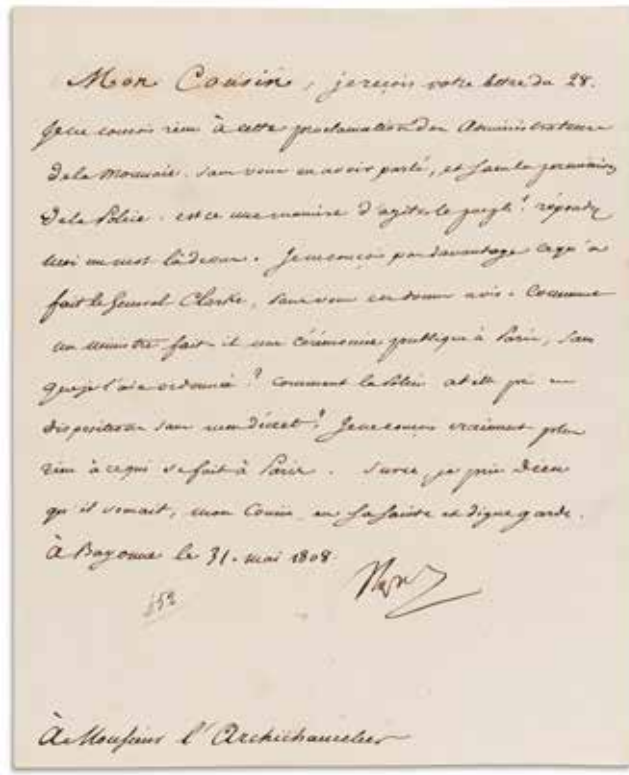 Mon Cousin, je reçois votre lettre du 28.
Je ne conçois rien à cette proclamation des Administrateurs
de la Monnaie sans vous en avoir parlé, et sans la permission
de la Police. est ce une manière d'agiter le peuple! répondez
moi un mot là dessus. Je ne conçois pas davantage ce qu'a
fait le Général Clarke, sans vous en donner avis. Comment
un ministre fait-il une cérémonie publique à Paris, sans
que je l'aie ordonné? comment la Police a-t-elle pris ces
dispositions sans mon décret! Je ne conçois vraiment plus
rien à ce qui se fait à Paris. Sur ce, je prie Dieu
qu'il vous ait, mon Cousin, en sa sainte et digne garde.
à Bayonne le 31. mai 1808.
Nap
À Monsieur l'Archichancelier